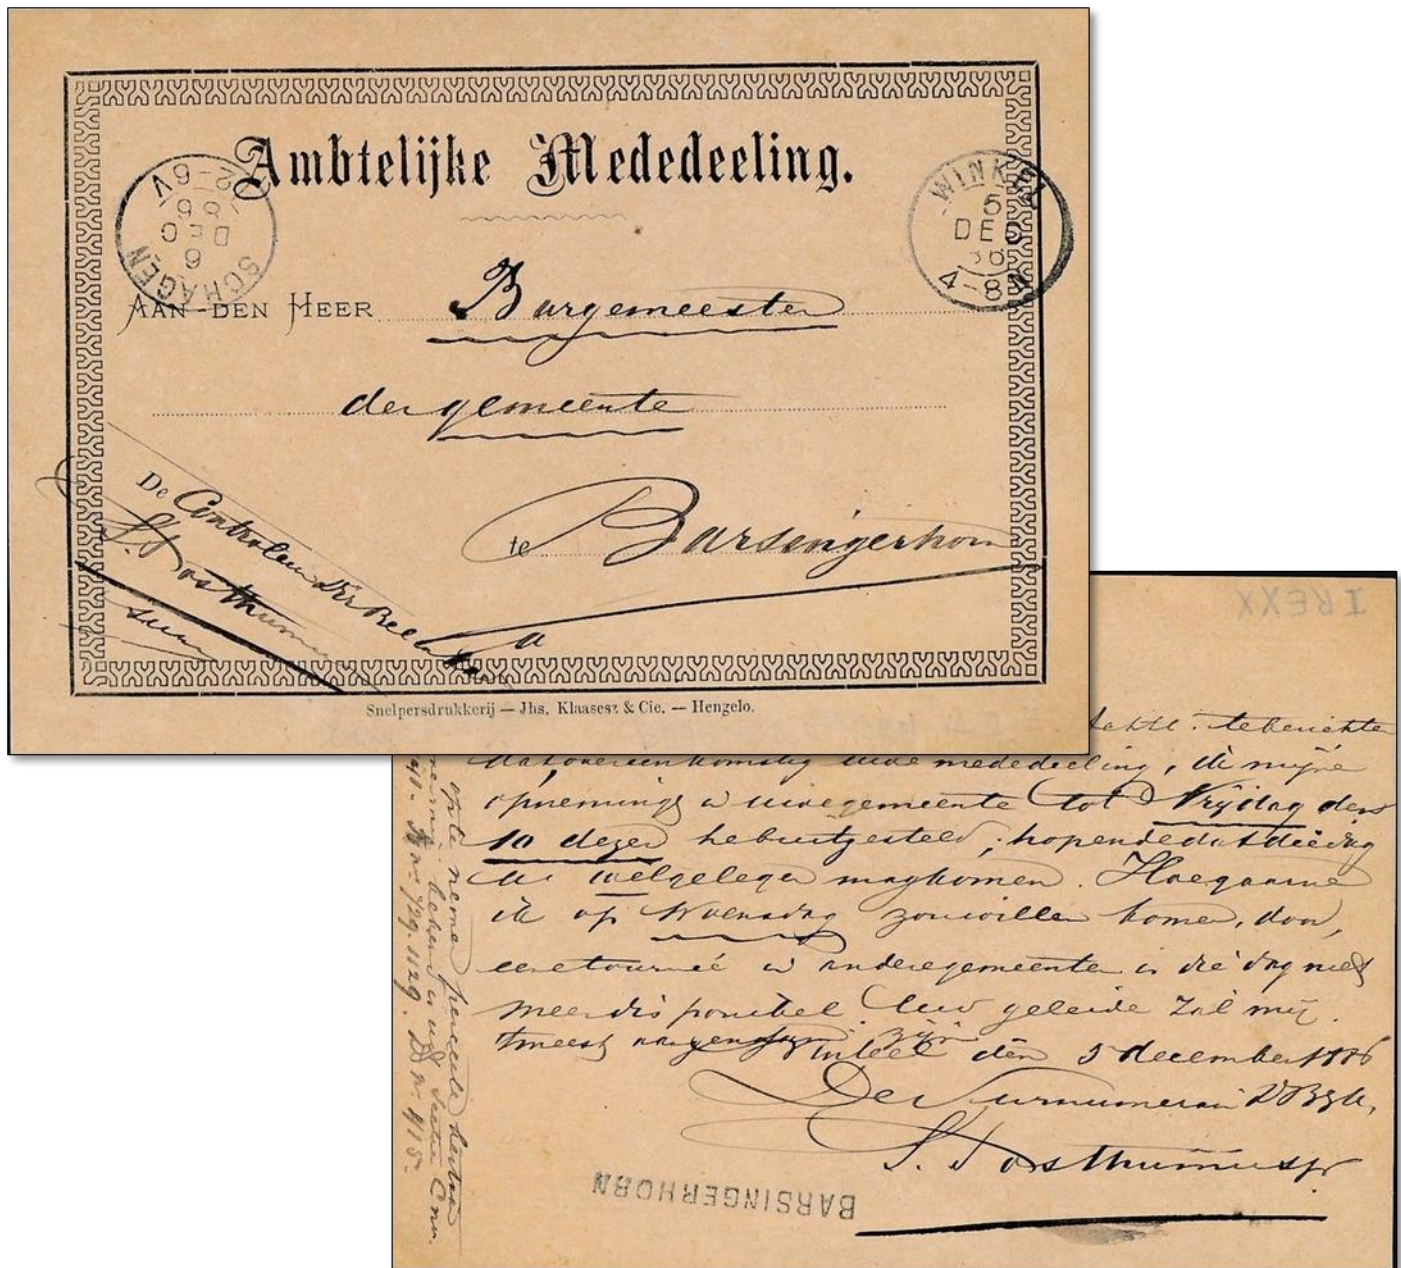 Ambtelijke Mededeeling.
SCHAGEN
6
DEC
86
12-6V
WINKEL
5
DEC
86
4-8N
AAN DEN HEER Burgemeester
der gemeente
te Barsingerhorn
De Controleur
S. Posthumus
Snelpersdrukkerij — Jhs. Klaasesz & Cie. — Hengelo.
IREXX
te berichten
dat overeenkomstig uwe mededeeling, de mijne
opneming in uwe gemeente tot Vrijdag den
10 dezer heb uitgesteld, hopende dat die dag
U welgelegen mag komen. Hoe gaarne
ik op Woensdag zou willen komen, door
eene tournée in andere gemeenten is die dag niet
meer disponibel. Uw geleide zal mij
meest aangenaam zijn
Winkel den 5 december 1886
De Surnumerair
S. Posthumus
BARSINGERHORN
op te nemen perceelen bestaan
Sectie C